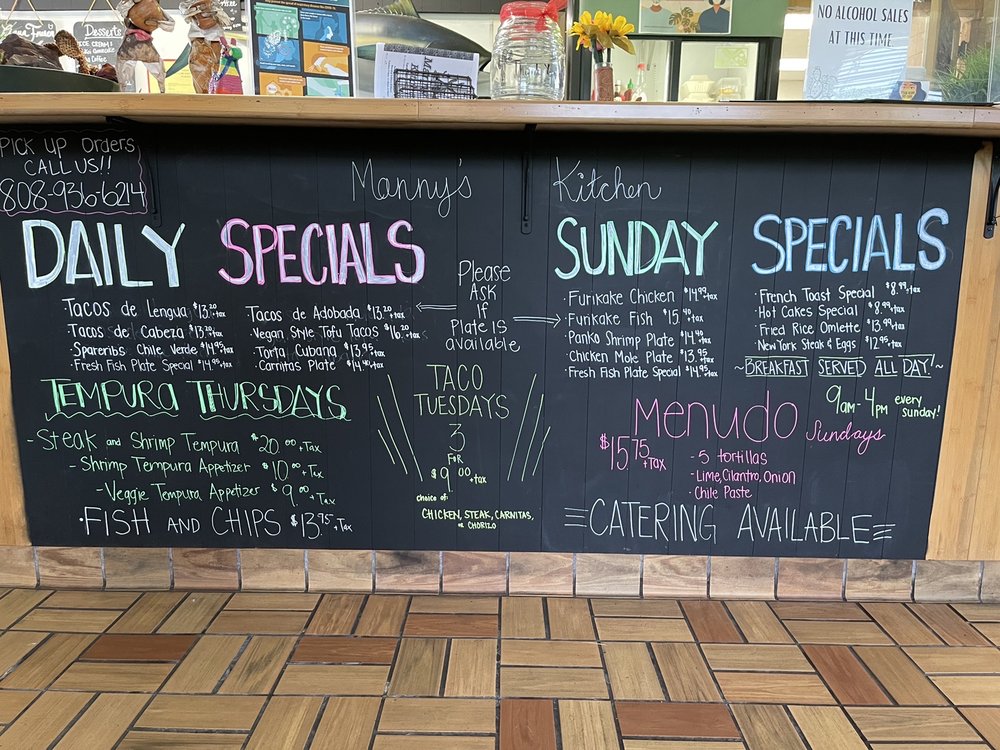 Desserts
ICE CREAM
NO ALCOHOL SALES
AT THIS TIME
PICK UP ORDERS
CALL US!!
808-936-6214
Manny's Kitchen
DAILY SPECIALS
Tacos de Lengua $13.20+tax
Tacos de Cabeza $13.20+tax
Spareribs Chile Verde $14.95+tax
Fresh Fish Plate Special $14.95+tax
Tacos de Adobada $13.20+tax
Vegan Style Tofu Tacos $16.20+tax
Torta Cubana $13.95+tax
Carnitas Plate $14.40+tax
Please
ASK
If
PLATE IS
available
SUNDAY SPECIALS
· Furikake Chicken $14.99+tax
· Furikake Fish $15.40+tax
· Panko Shrimp Plate $14.40+tax
· Chicken Mole Plate $13.95+tax
· Fresh Fish Plate Special $14.95+tax
· French Toast Special $8.99+tax
· Hot Cakes Special $8.99+tax
· Fried Rice Omlette $13.99+tax
· New York Steak & Eggs $12.95+tax
~BREAKFAST SERVED ALL DAY!~
9am-4pm every
sunday!
TEMPURA THURSDAYS
-Steak and Shrimp Tempura $20.00+Tax
- Shrimp Tempura Appetizer $10.00+Tax
- Veggie Tempura Appetizer $9.00+Tax
· FISH AND CHIPS $13.75+Tax
TACO
TUESDAYS
3
FOR
$9.00+tax
choice of:
CHICKEN, STEAK, CARNITAS,
or CHORIZO
Menudo Sundays
$15.75+TAX
- 5 tortillas
- Lime, Cilantro, Onion
- Chile Paste
CATERING AVAILABLE